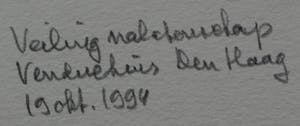 Veiling nalatenschap
Venduehuis Den Haag
19 okt. 1994